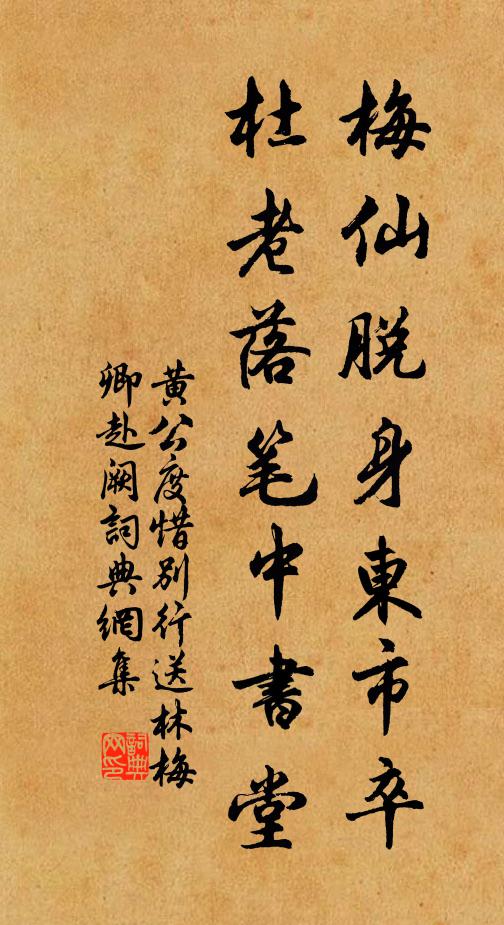 梅仙脱身東市卒
杜老落笔中書堂
黄公度惜别行送林梅
卿赴阙詞典網集
詞典
网印